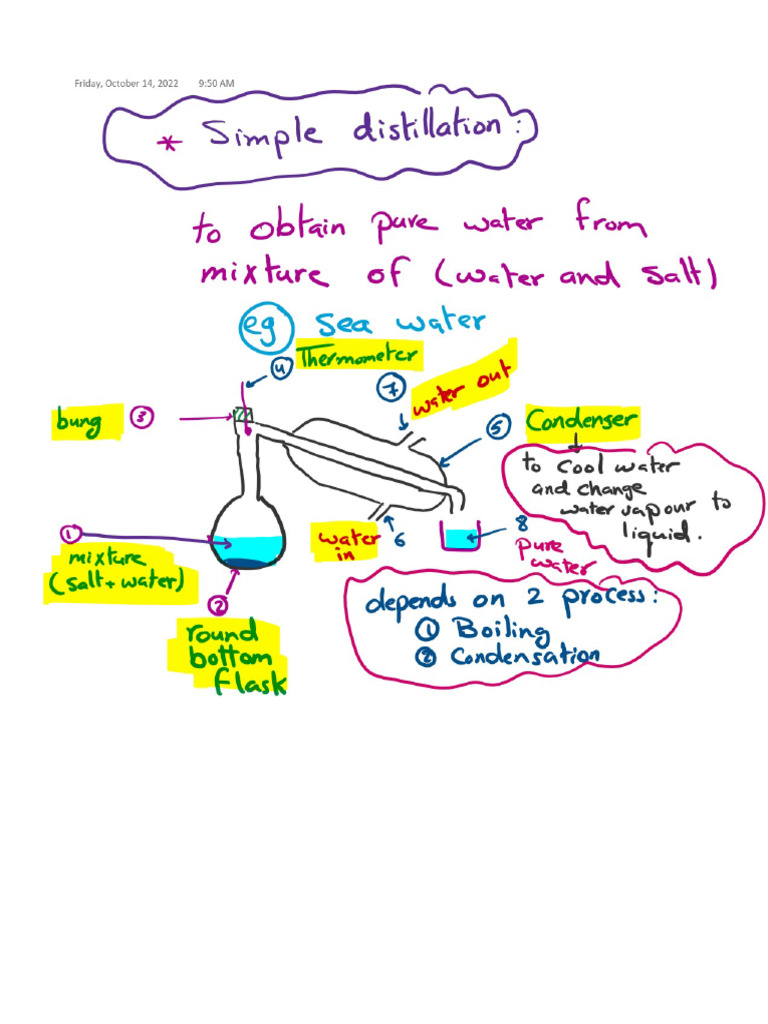 Friday, October 14, 2022 9:50 AM
* Simple distillation:
to obtain pure water from
mixture of (water and salt)
eg sea water
4 Thermometer
7 water out
bung 3
5 Condenser
to cool water
and change
water vapour to
liquid.
1
mixture
(salt + water)
water
in
6
8
pure
water
2
round
bottom
flask
depends on 2 process:
1 Boiling
2 Condensation